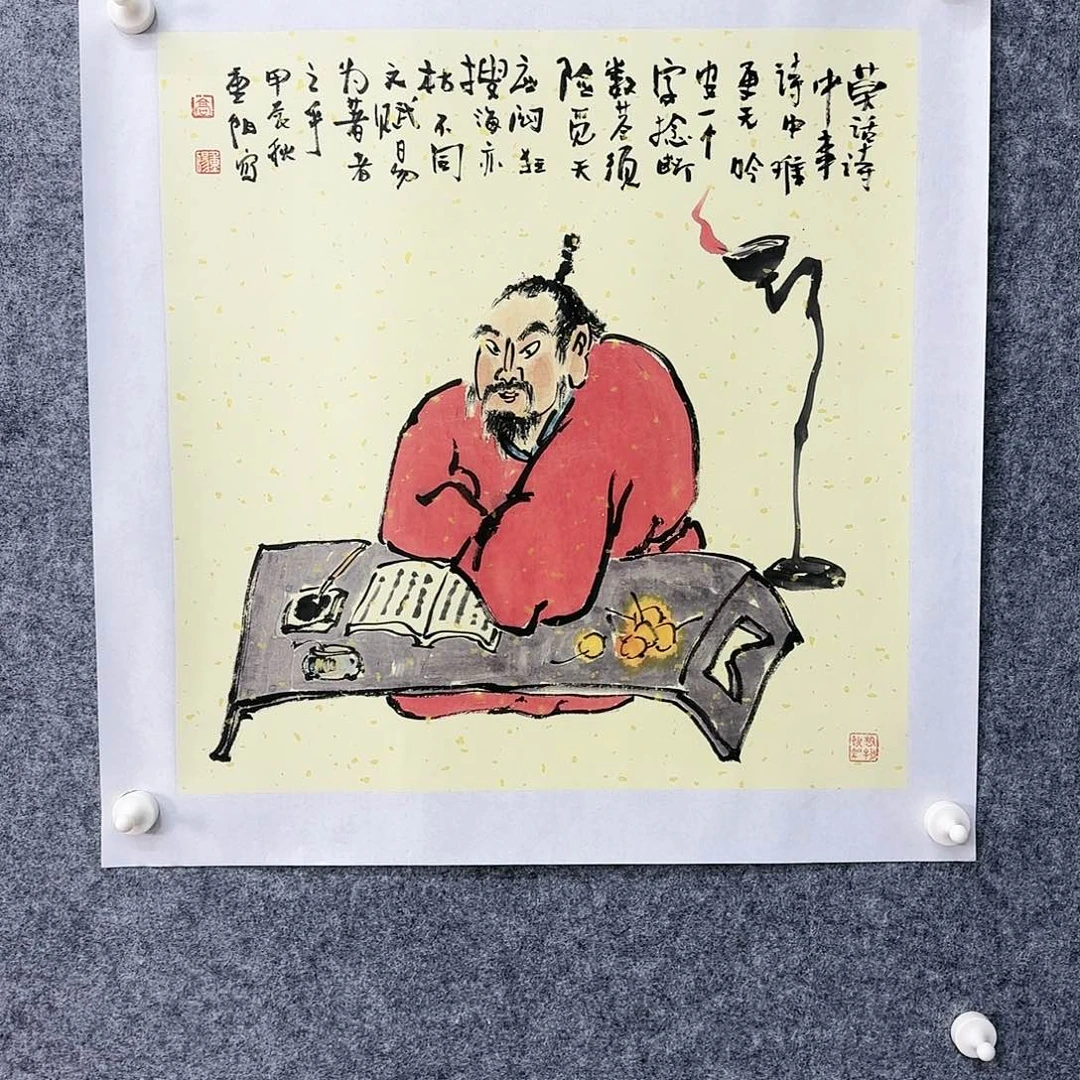 莫话诗
中事
诗中难
更无吟
安一个
字捻断
数茎须
险觅天
应闷狂
搜海亦
枯不同
文赋易
为著者
之乎
甲辰秋
重阳写